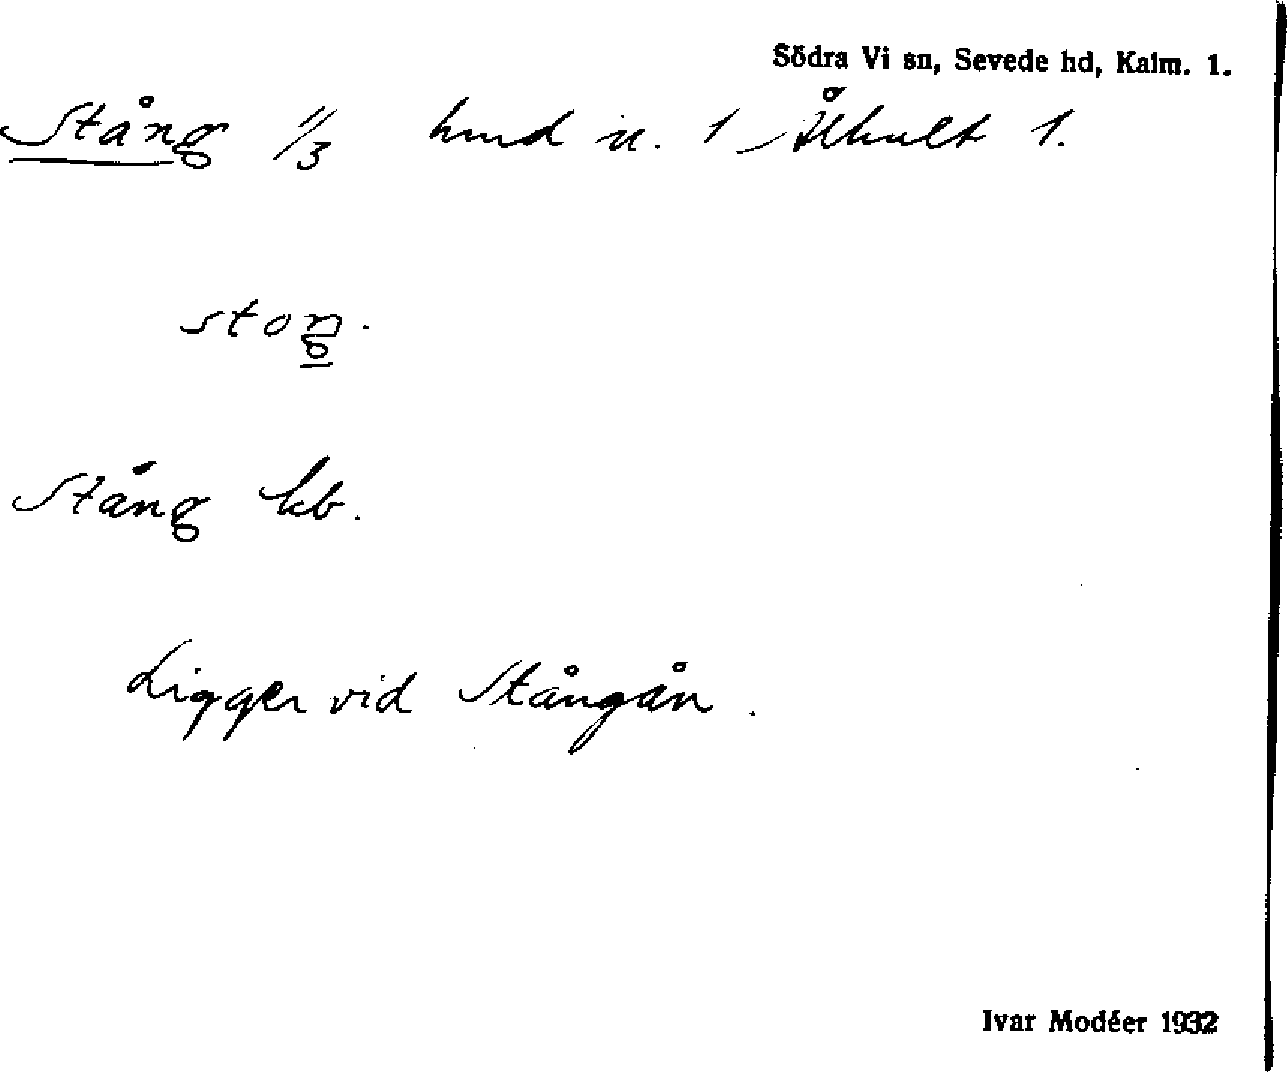 Södra Vi sn, Sevede hd, Kalm. l.
Stång 1/3 hmd n. 1 Ålhult 1.
stoŋ.
Stång kb.
Ligger vid Stångån.
Ivar Modéer 1932